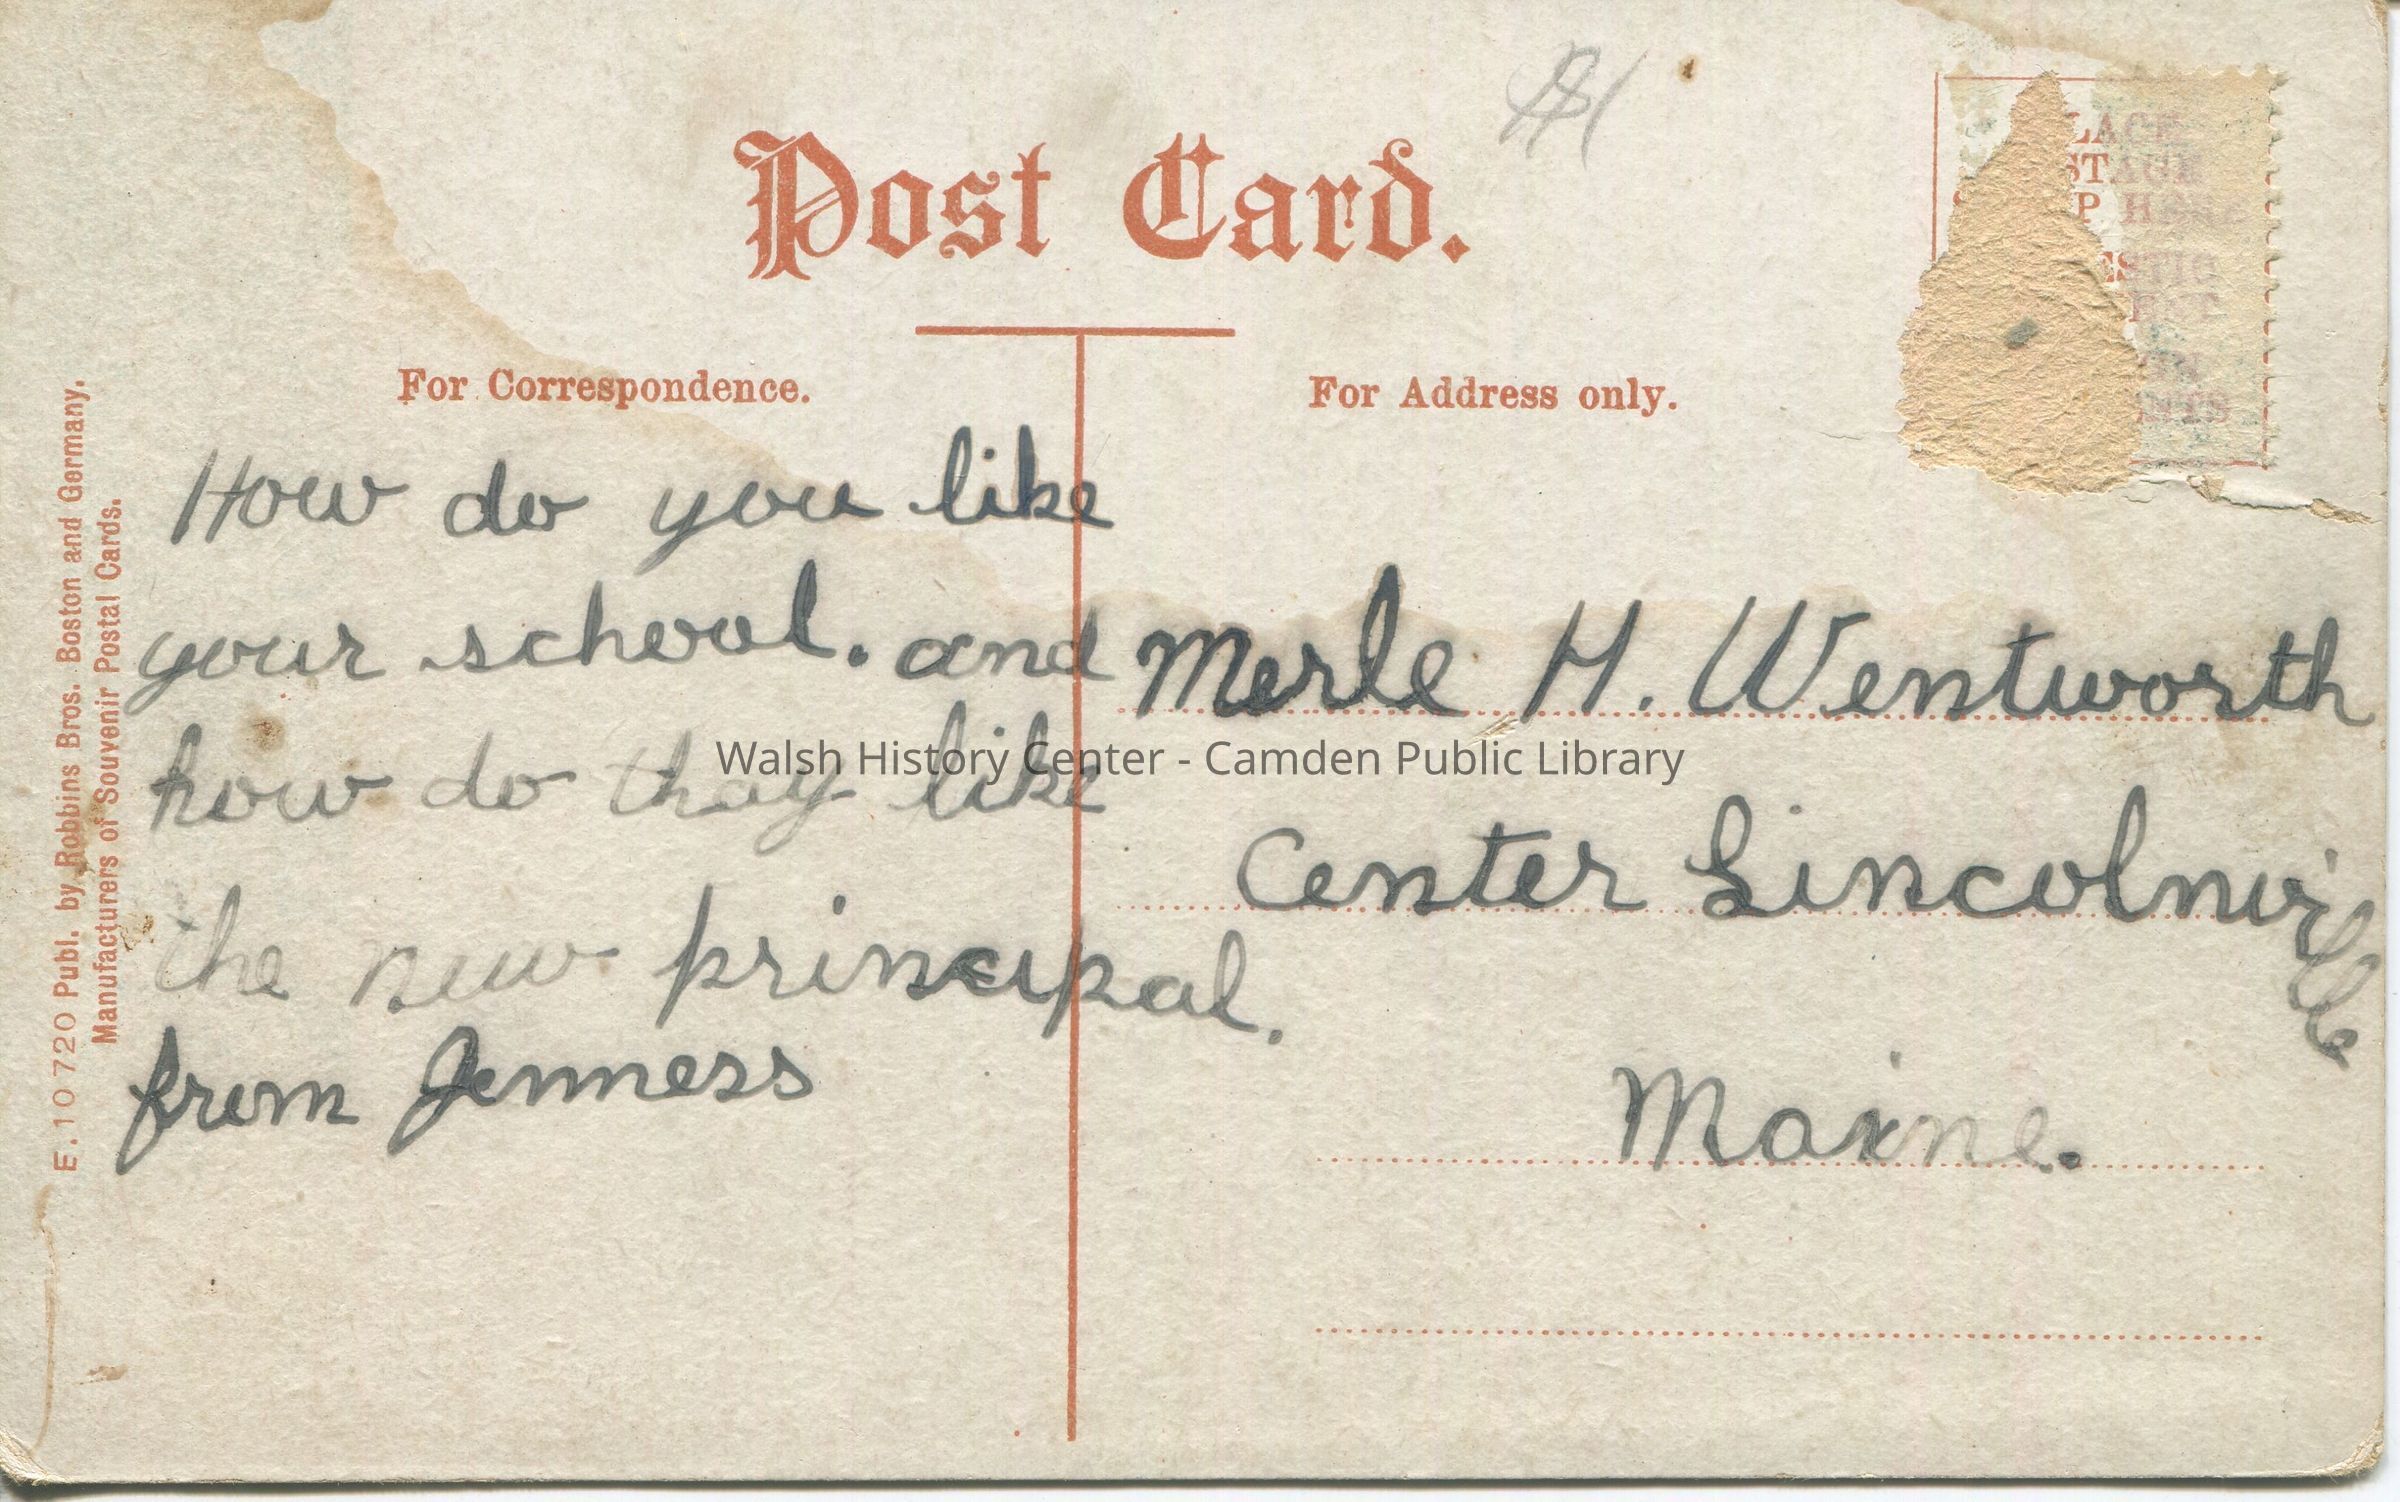 Post Card.
For Correspondence.
For Address only.
LACE
STAGE
P HERE
ESTIC
E. 10 720 Publ. by Robbins Bros. Boston and Germany.
Manufacturers of Souvenir Postal Cards.
How do you like
your school. and
how do thay like
the new principal.
from Jenness
Merle H. Wentworth
Center Lincolnville
Maine.
Walsh History Center - Camden Public Library